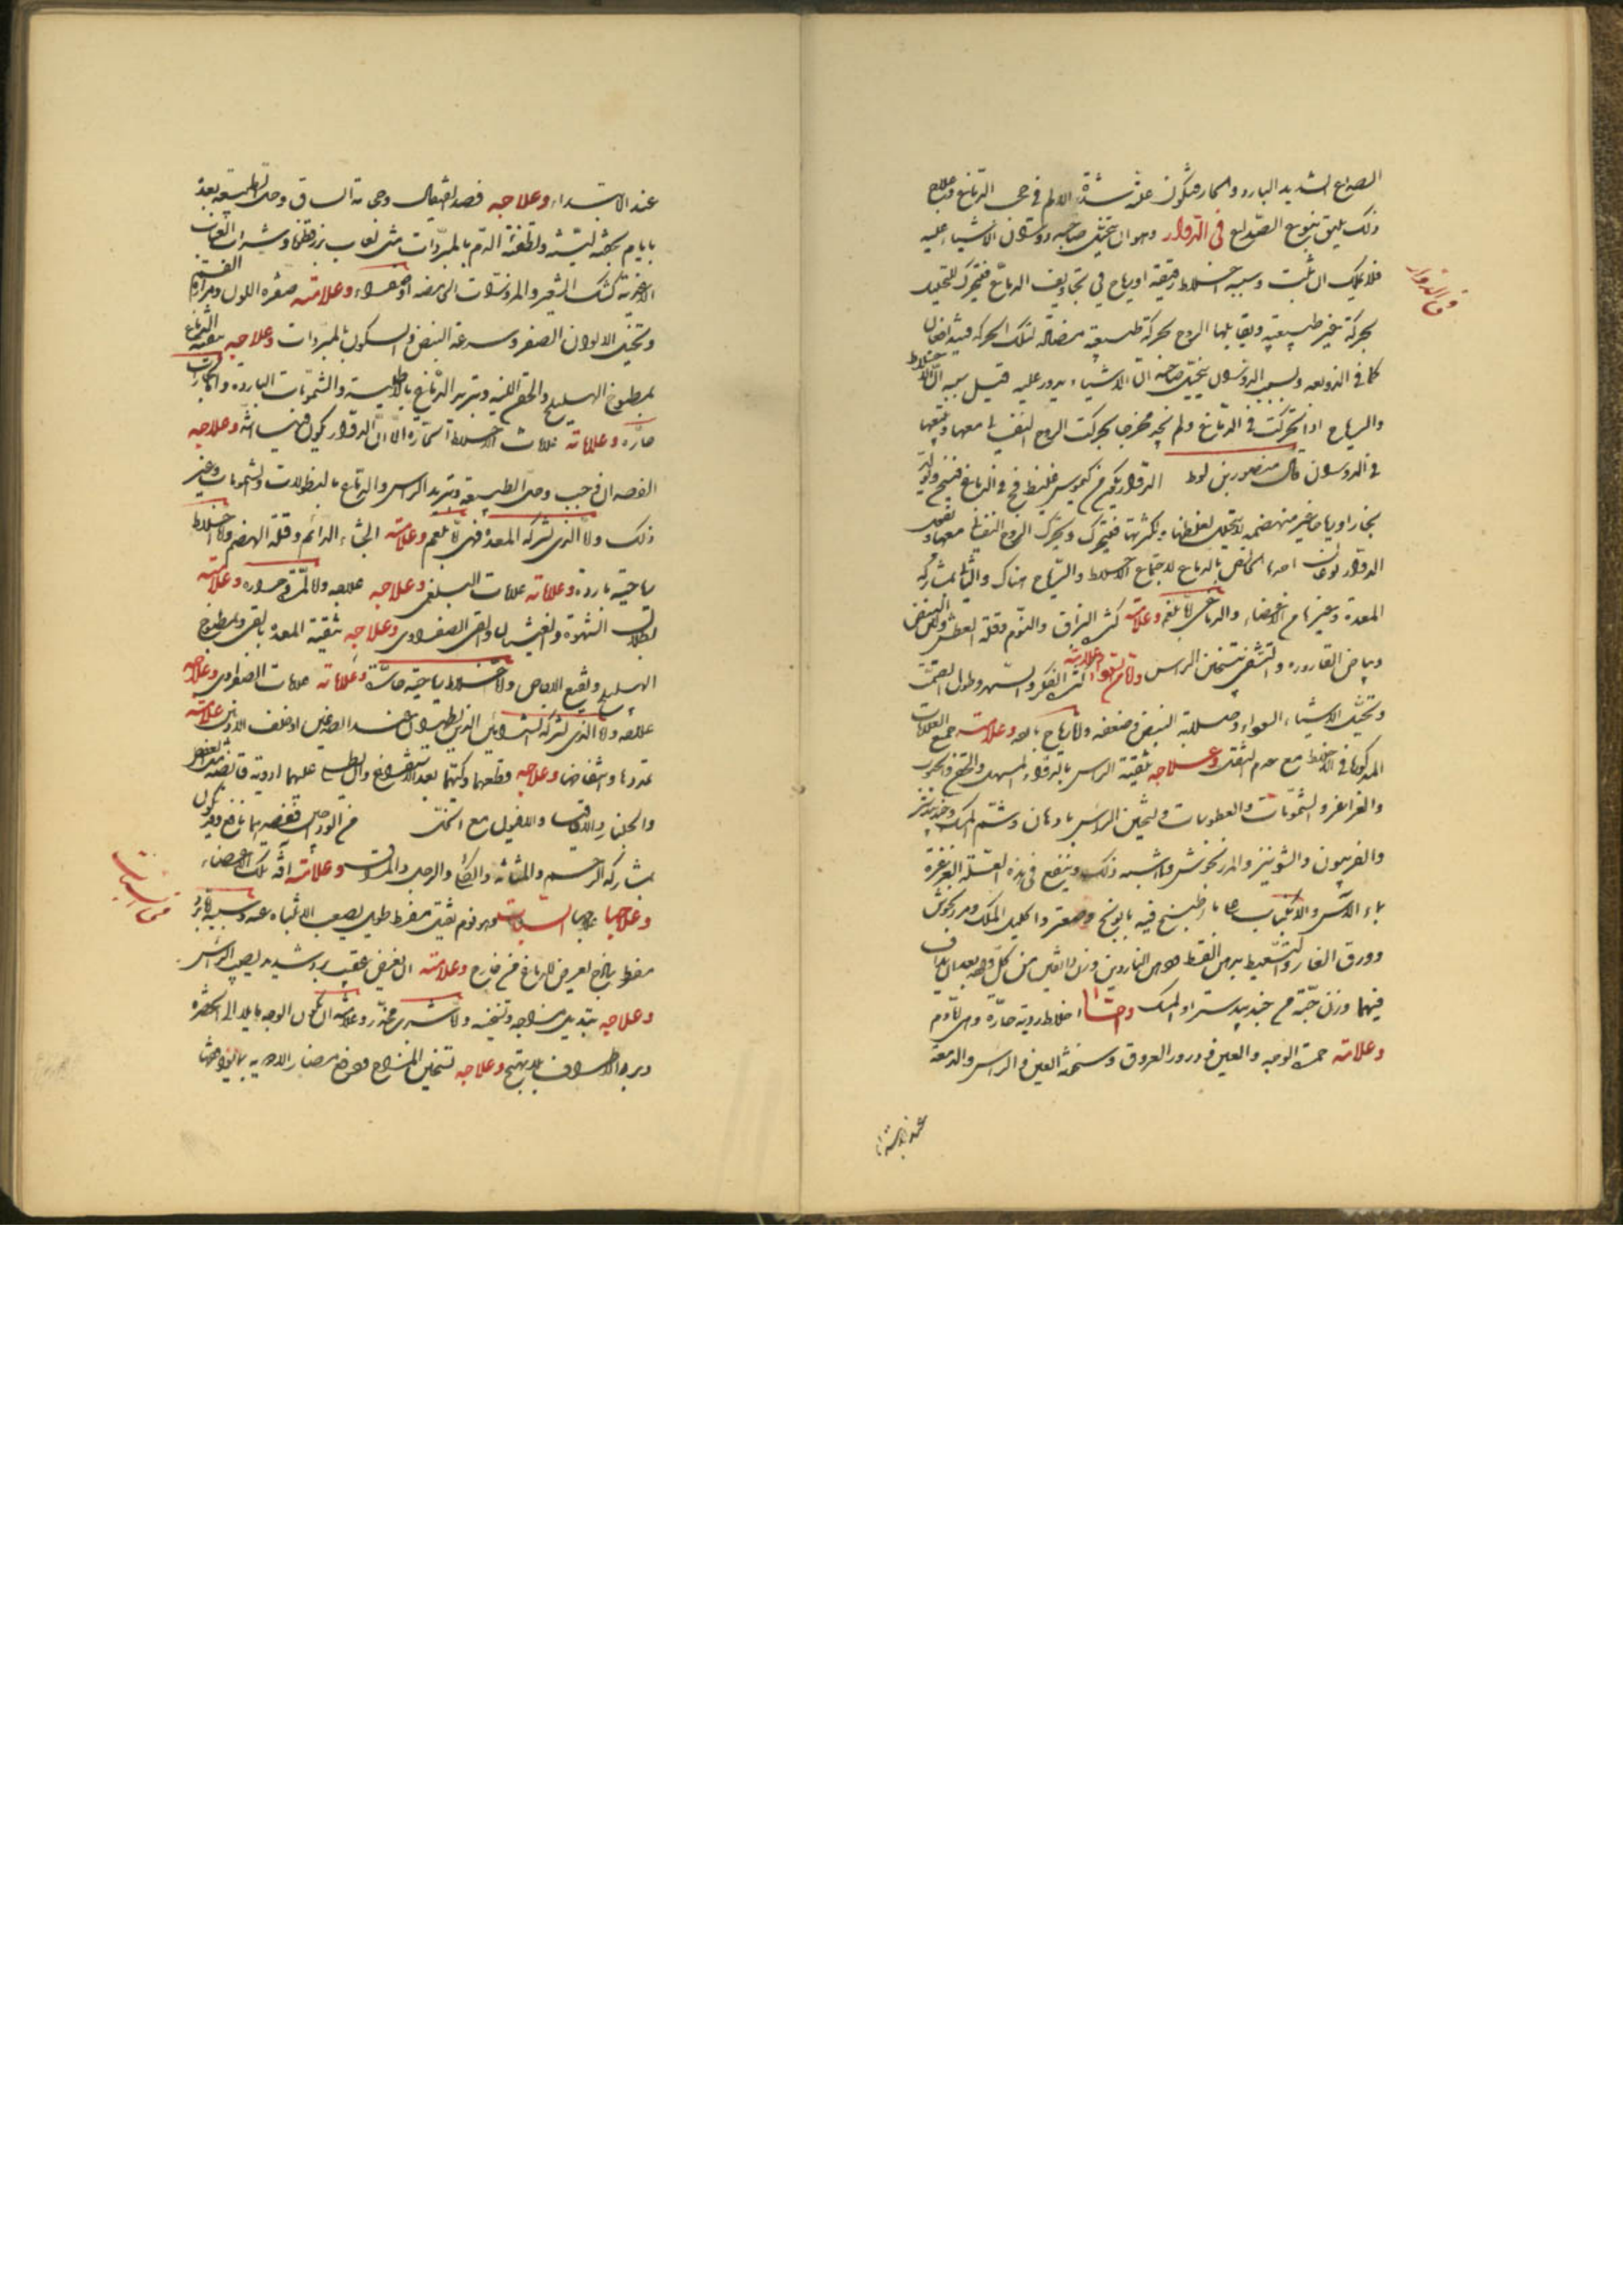 الصداع الشديد البارد والحار فيكون علة شدة الالم في حجب الدماغ وعلاج
ذلك يليق بنوع الصداع في الدوار وهو ان يتخيل صاحبه دوران الاشياء عليه
فلا يملك ان يثبت وسببه اخلاط رقيقة او رياح في تجاويف الدماغ فيتحرك للتحليل
بحركة غير طبيعية ويقابلها الروح بحركة طبيعية مضادة لتلك الحركة
كما في الزوبعة ولسبب الدوران يتخيل صاحبه ان الاشياء يدور عليه قيل سببه ان الاخلاط
والرياح اذا تحركت في الدماغ ولم تجد مخرجا تحركت الروح النفساني معها وتتبعها
في الدوران قال منصور بن لوط الدوار يكون من كيموس غليظ فج في الدماغ فينتج وتولد
بخارا ورياحا غير منهضمة لا يتحلل لغلظها ولكثرتها فيتحرك ويحرك الروح النفساني معها
الدوار نوعان احدهما الخاص بالدماغ لاجتماع الاخلاط والرياح هناك والثاني بمشاركة
المعدة وغيرها من الاعضاء والدماغي اما بلغم وعلامته كثرة البزاق والنوم وقلة العطش ولين النبض
وبياض القارورة والتشفي بتسخين الراس واما من سوداء وعلامته كثرة الفكر والسهر وطول الصمت
وتخيل الاشياء السوداء وصلابة النبض وضعفه واما رياح باردة وعلامته جميع العلامات
المذكورة في الاخلاط مع عدم الثقل وعلاجه تنقية الراس بالدواء المسهل والحقن والحبوب
والغراغر والشمومات والعطوسات وتسخين الراس بادهان وشم المسك وجندبيدستر
والفربيون والشونيز والمرزنجوش وما اشبه ذلك وينفع في هذه العلة الغرغرة
بماء الآس والانكباب على ماء طبيخ فيه بابونج وصعتر واكليل الملك ومرزنجوش
وورق الغار والتسعيط بدهن القسط ودهن الناردين وزن دانقين من كل واحد بعد ان يداف
فيهما وزن حبة من جندبيدستر او المسك واما اخلاط ردية حارة وهي اما دم
وعلامته حمرة الوجه والعين ودرور العروق وسخنة العين والراس والدمعة
عند الابتداء
في الدوار
عند الابتداء وعلاجه فصد القيفال وحجامة الساق وحل الطبيعة بعده
بايام بحقنة لينة وتطفئة الدم بالمبردات مثل لعاب بزرقطونا وشراب العناب
الاغذية كشك الشعير والمزورات الحامضة او صفراء وعلامته صفرة اللون ومرارة الفم
وتخيل الالوان الصفر وسرعة النبض والسكون بالمبردات وعلاجه تنقية الدماغ
بمطبوخ الهليلج والحقن اللينة وتبريد الدماغ بالاطلية والشمومات الباردة
حارة وعلاماته علامات الاخلاط الحارة الا ان الدوار يكون فيها اشد وعلاجه
الفصد ان وجب وحل الطبيعة وتبريد الراس والدماغ بالنطولات والشمومات وغير
ذلك واما الذي لشركة المعدة فهي اما بلغم وعلامته الجشاء الدائم وقلة الهضم واما اخلاط
رياحية باردة وعلاماته علامات البلغمي وعلاجه علاجه واما لمرة صفراء وعلامته
بطلان الشهوة والغثيان والقي الصفراوي وعلاجه تنقية المعدة بالقي وبمطبوخ
الهليلج ونقيع الاجاص واما اخلاط رياحية حارة وعلاماته علامات الصفراوي وعلاجه
علاجه واما الذي لشركة الشريانين الذين يظهران عند الصدغين او خلف الاذن وعلامته
تمددهما وانتفاخهما وعلاجه قطعهما وكيهما بعد الاستفراغ وان يطلى عليهما ادوية قابضة مثل العفص
والجلنار والاقاقيا والافيون مع الخل من الوداجين ففصدهما نافع وقد يكون
بمشاركة الرحم والمثانة والكلى والرجل والمراق وعلامته آفة تلك الاعضاء
وعلاجها علاجها السبات وهو نوم ثقيل مفرط طويل يصعب الانتباه عنه وسببه اما برد
مفرط ساذج يعرض للدماغ من خارج وعلامته ان يعرض عقيب برد شديد يصيب الراس
وعلاجه تبديل مزاجه وتسخينه واما شرب مخدر وعلامته ان يكون الوجه مايلا الى الخضرة
وبرد الاطراف بلا تهيج وعلاجه تسخين المزاج ودفع مضار الادوية
في السبات